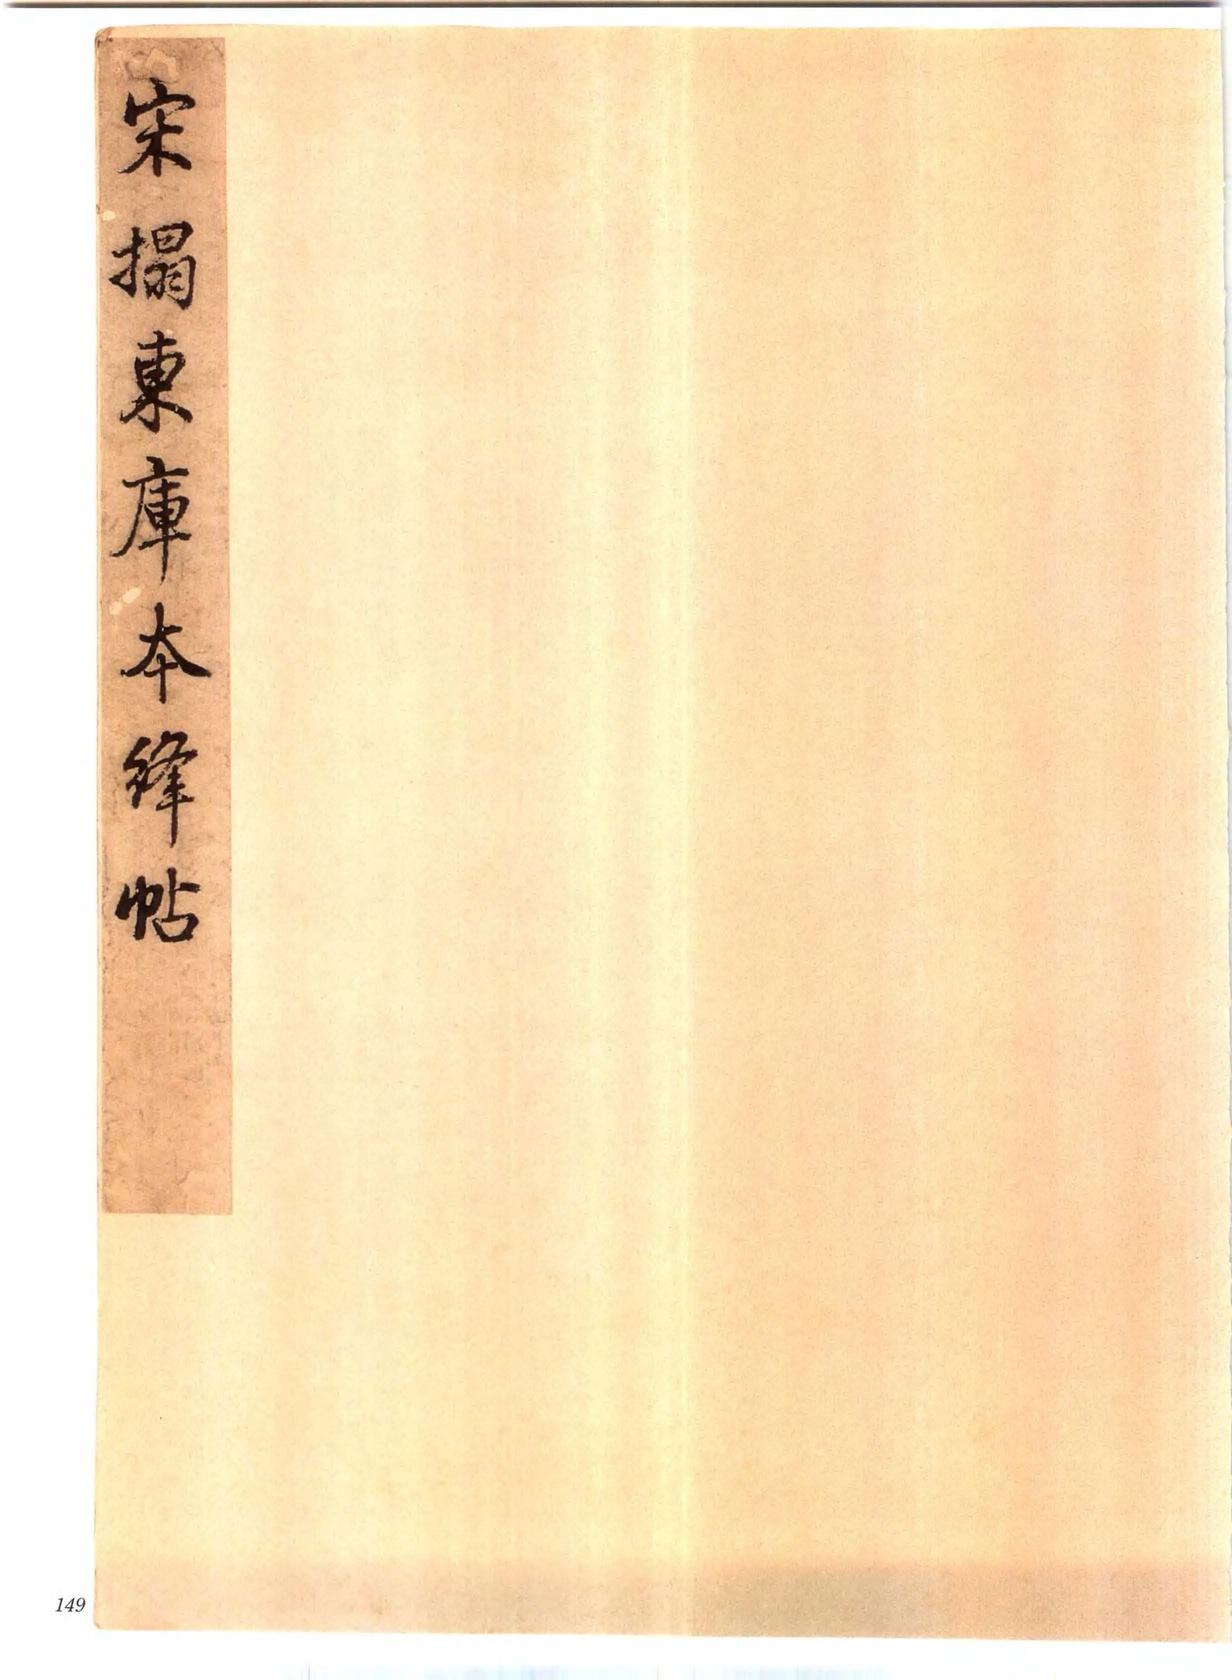 宋搨東庫本絳帖
149